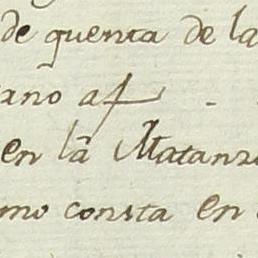 de quenta de la
en la Matanz
mo consta en